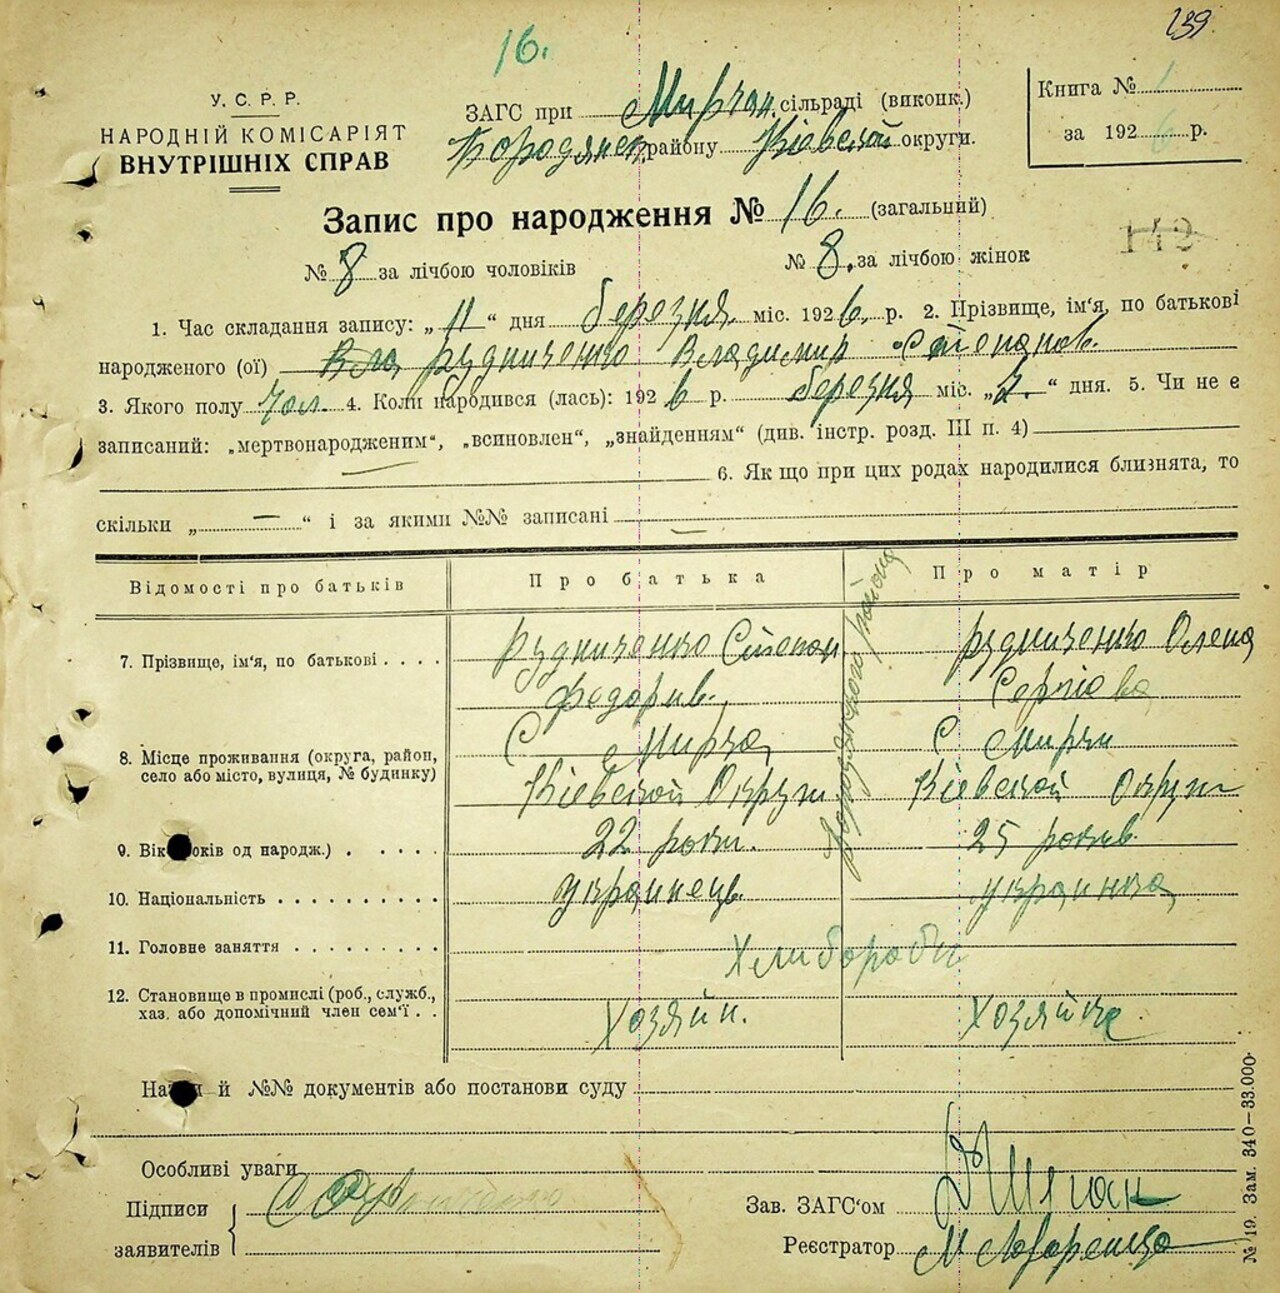 239
16.
У. С. Р. Р.
НАРОДНІЙ КОМІСАРІЯТ
ВНУТРІШНІХ СПРАВ
ЗАГС при Мирчан. сільраді (виконк.)
Бородянск. району Кіевской округи.
Книга № 1
за 1926 р.
Запис про народження № 16. (загальний)
№ 8 за лічбою чоловіків № 8. за лічбою жінок
1. Час складання запису: „11“ дня березня міс. 1926. р. 2. Прізвище, ім‘я, по батькові
народженого (ої) Вла Рудниченко Владимир Степанов.
3. Якого полу Чол. 4. Коли народився (лась): 1926 р. березня міс. „2.“ дня. 5. Чи не є
записаний: „мертвонародженим“, „всиновлен“, „знайденням“ (див. інстр. розд. III п. 4)
6. Як що при цих родах народилися близнята, то
скільки „ — “ і за якими №№ записані —
Відомості про батьків Про батька Про матір
7. Прізвище, ім‘я, по батькові . . . . Рудниченко Степан Рудниченко Олена
Федорив. Сергіова
8. Місце проживання (округа, район, С Мирча С Мирчи
село або місто, вулиця, № будинку) Кіевской Округи Кіевской Округи
Бородянского района
9. Вік років од народж.) . . . . . 22 роки. 25 рокив.
10. Національність . . . . . . . . . . Украинець Украинка
11. Головне заняття . . . . . . . . . Хлибороби
12. Становище в промислі (роб., служб.,
хаз. або допомічний член сем‘ї . . Хозяйн. Хозяйка
й №№ документів або постанови суду
Особливі уваги
Підписи
заявителів
Зав. ЗАГС‘ом
Реєстратор
№ 19. Зам. 340—33.000·